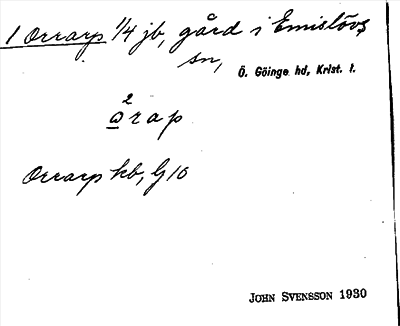 1 Orrarp 1/4 jb, gård i Emislövs
sn,
Ö. Göinge hd, Krist. l.
2
a r a p
Orrarp kb, G 10
JOHN SVENSSON 1930